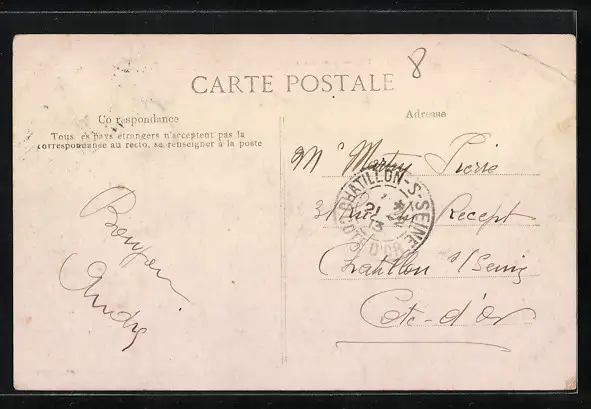 8
CARTE POSTALE
Correspondance
Tous les pays étrangers n'acceptent pas la
correspondance au recto, se renseigner à la poste
Adresse
Mr Martin Pierre
31 rue du Recept
Chatillon s/Seine
Cote-d'or
CHATILLON-S-SEINE
COTE D'OR
Bonjour
André